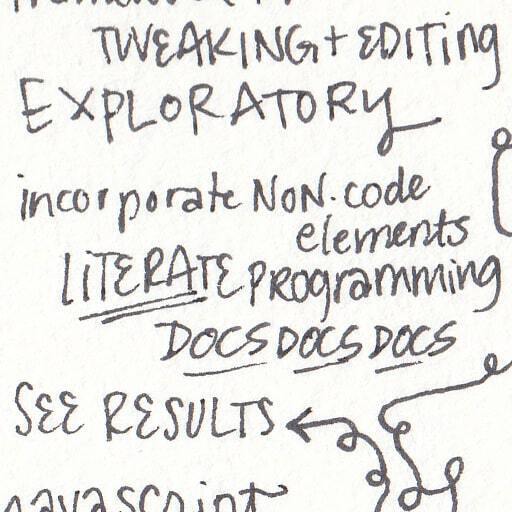 TWEAKING + EDITING
EXPLORATORY
incorporate NON-code
elements
LITERATE PROgramming
DOCS DOCS DOCS
SEE RESULTS
javascript